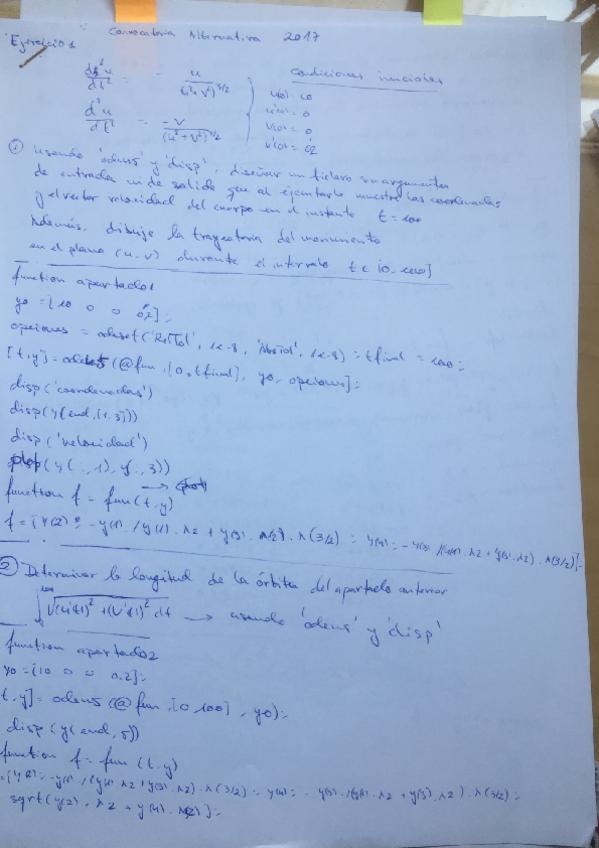 Convocatoria Alternativa 2017
Ejercicio 1
d²u/dt² = - u/(u²+v²)^3/2
d²u/dt² = -v/(u²+v²)^3/2
condiciones iniciales
u(0) = 10
u'(0) = 0
v(0) = 0
v'(0) = 0'2
① usando 'ode45' y 'disp', diseñar un fichero sin argumentos
de entrada ni de salida que al ejecutarlo muestre las coordenadas
y el vector velocidad del cuerpo en el instante t = 100
Además, dibuje la trayectoria del movimiento
en el plano (u, v) durante el intervalo t ∈ [0, 100]
function apartado1
y0 = [10 0 0 0,2];
opciones = odeset('RelTol', 1e-8, 'AbsTol', 1e-8); tfinal = 100;
[t, y] = ode45(@fun, [0, tfinal], y0, opciones];
disp('coordenadas')
disp(y(end, [1,3]))
disp('velocidad')
plot(y(:,1), y(:,3))
function f = fun(t, y)
② Determinar la longitud de la órbita del apartado anterior
∫ √(u'(t))² + (v'(t))² dt → usando 'ode45' y 'disp'
function apartado2
y0 = [10 0 0 0.2];
t, y] = ode45(@fun, [0 100], y0);
disp(y(end, 5))
function f = fun(t, y)